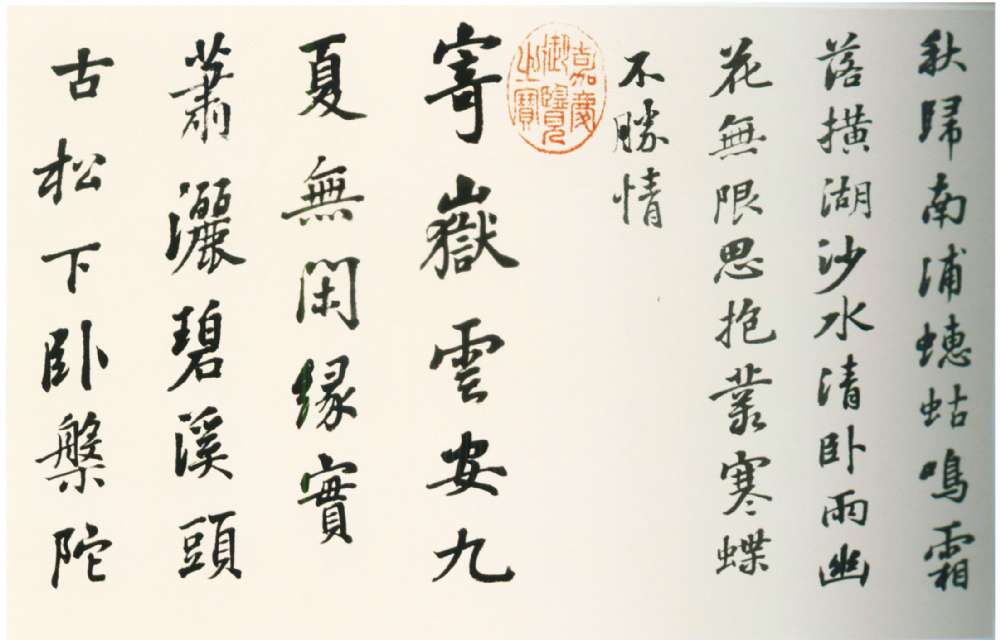 秋歸南浦蟪蛄鳴霜
落橫湖沙水清臥雨幽
花無限思抱叢寒蝶
不勝情
嘉慶
御覽
之寶
寄嶽雲安九
夏無閑緣實
蕭灑碧溪頭
古松下臥槃陀